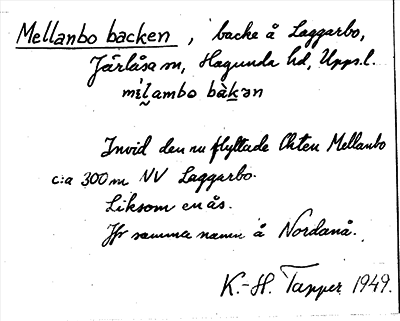 Mellanbo backen, backe å Laggarbo,
Järlåsa sn, Hagunda hd, Upps.l.
mìl̬ambo bàk̬ən
Invid den nu flyttade Chten Mellanbo
c:a 300 m NV Laggarbo.
Liksom en ås.
Jfr samma namn å Nordanå.
K.-H. Tapper 1949.